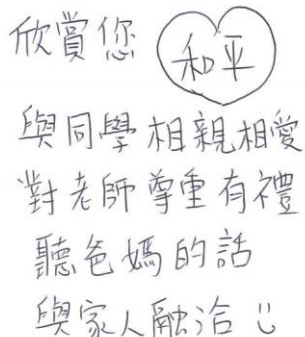 欣賞您 和平
與同學相親相愛
對老師尊重有禮
聽爸媽的話
與家人融洽